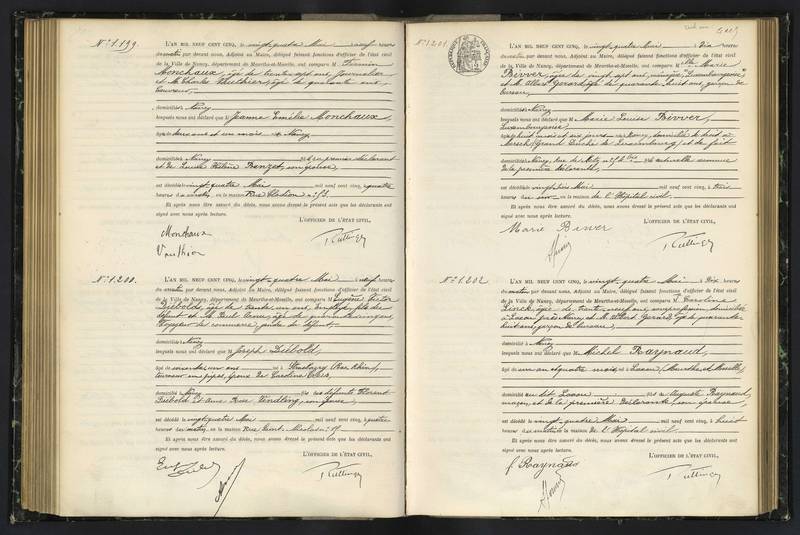 N° 1.199.
L'AN MIL NEUF CENT CINQ, le vingt-quatre Mai neuf heures
du matin par devant nous, Adjoint au Maire, délégué faisant fonctions d'officier de l'état civil
de la Ville de Nancy, département de Meurthe-et-Moselle, ont comparu M Firmin
Monchaux, âgé de trente sept ans, journalier
et M. Charles Vauthier, âgé de quarante ans,
couvreur,
domiciliés Nancy
lesquels nous ont déclaré que M Jeanne Emilie Monchaux,
âgée de deux ans et un mois née Nancy
domiciliée Nancy du premier déclarant
et de Lucie Hélène
est décédée vingt quatre Mai mil neuf cent cinq, quatre
heures du matin, en la maison Rue
Et après nous être assuré du décès, nous avons dressé le présent acte que les déclarants ont
signé avec nous après lecture.
L'OFFICIER DE L'ÉTAT CIVIL,
Monchaux
Vauthier
N° 1.200.
L'AN MIL NEUF CENT CINQ, le vingt-quatre Mai à neuf heures
du matin par devant nous, Adjoint au Maire, délégué faisant fonctions d'officier de l'état civil
de la Ville de Nancy, département de Meurthe-et-Moselle, ont comparu M Eugène Victor
Diébold, âgé de trente un ans, employé, fils du
défunt et M. Paul âgé de quarante cinq ans,
voyageur de commerce, gendre du défunt
domiciliés à Nancy
lesquels nous ont déclaré que M Joseph Diébold,
âgé de soixante un ans né à Strasbourg (Bas Rhin),
tourneur en pipes, époux de Caroline
domicilié Nancy fils des défunts Florent
Diébold et Anne Rose Wendling, son épouse,
est décédé le vingt quatre Mai mil neuf cent cinq, quatre
heures du matin, en la maison Rue Saint Nicolas n°
Et après nous être assuré du décès, nous avons dressé le présent acte que les déclarants ont
signé avec nous après lecture.
L'OFFICIER DE L'ÉTAT CIVIL,
N° 1.201.
L'AN MIL NEUF CENT CINQ, le vingt-quatre Mai Dix heures
du matin par devant nous, Adjoint au Maire, délégué faisant fonctions d'officier de l'état civil
de la Ville de Nancy, département de Meurthe-et-Moselle, ont comparu Mlle Marie
Bivver, âgée de vingt sept ans, ménagère, Luxembourgeoise
et M. Albert Gérard, âgé de quarante huit ans, garçon de
bureau,
domiciliés Nancy
lesquels nous ont déclaré que M Marie Louise Bivver,
Luxembourgeoise,
âgée huit mois et jours née Nancy, domiciliée de droit à
Mersch (Grand Duché de Luxembourg) et de fait
domiciliée Nancy, Rue de Metz n° fille naturelle reconnue
de la première déclarante,
est décédée vingt trois Mai mil neuf cent cinq, à trois
heures du soir en la maison de l'Hôpital civil.
Et après nous être assuré du décès, nous avons dressé le présent acte que les déclarants ont
signé avec nous après lecture.
L'OFFICIER DE L'ÉTAT CIVIL,
Marie Bivver
N° 1.202
L'AN MIL NEUF CENT CINQ, le vingt-quatre Mai à Dix heures
du matin par devant nous, Adjoint au Maire, délégué faisant fonctions d'officier de l'état civil
de la Ville de Nancy, département de Meurthe-et-Moselle, ont comparu M Caroline
âgée de trente neuf ans, sans profession, domiciliée
à Laxou près Nancy et M. Albert Gérard, âgé de quarante
huit ans, garçon de bureau,
domicilié à Nancy
lesquels nous ont déclaré que M Michel Raynaud,
âgé de un an et quatre mois né à Laxou (Meurthe et Moselle),
domicilié au dit Laxou fils de Auguste Raynaud,
maçon, et de la première déclarante, son épouse,
est décédé le vingt-quatre Mai mil neuf cent cinq, à huit
heures du matin en la maison de l'Hôpital civil.
Et après nous être assuré du décès, nous avons dressé le présent acte que les déclarants ont
signé avec nous après lecture.
L'OFFICIER DE L'ÉTAT CIVIL,